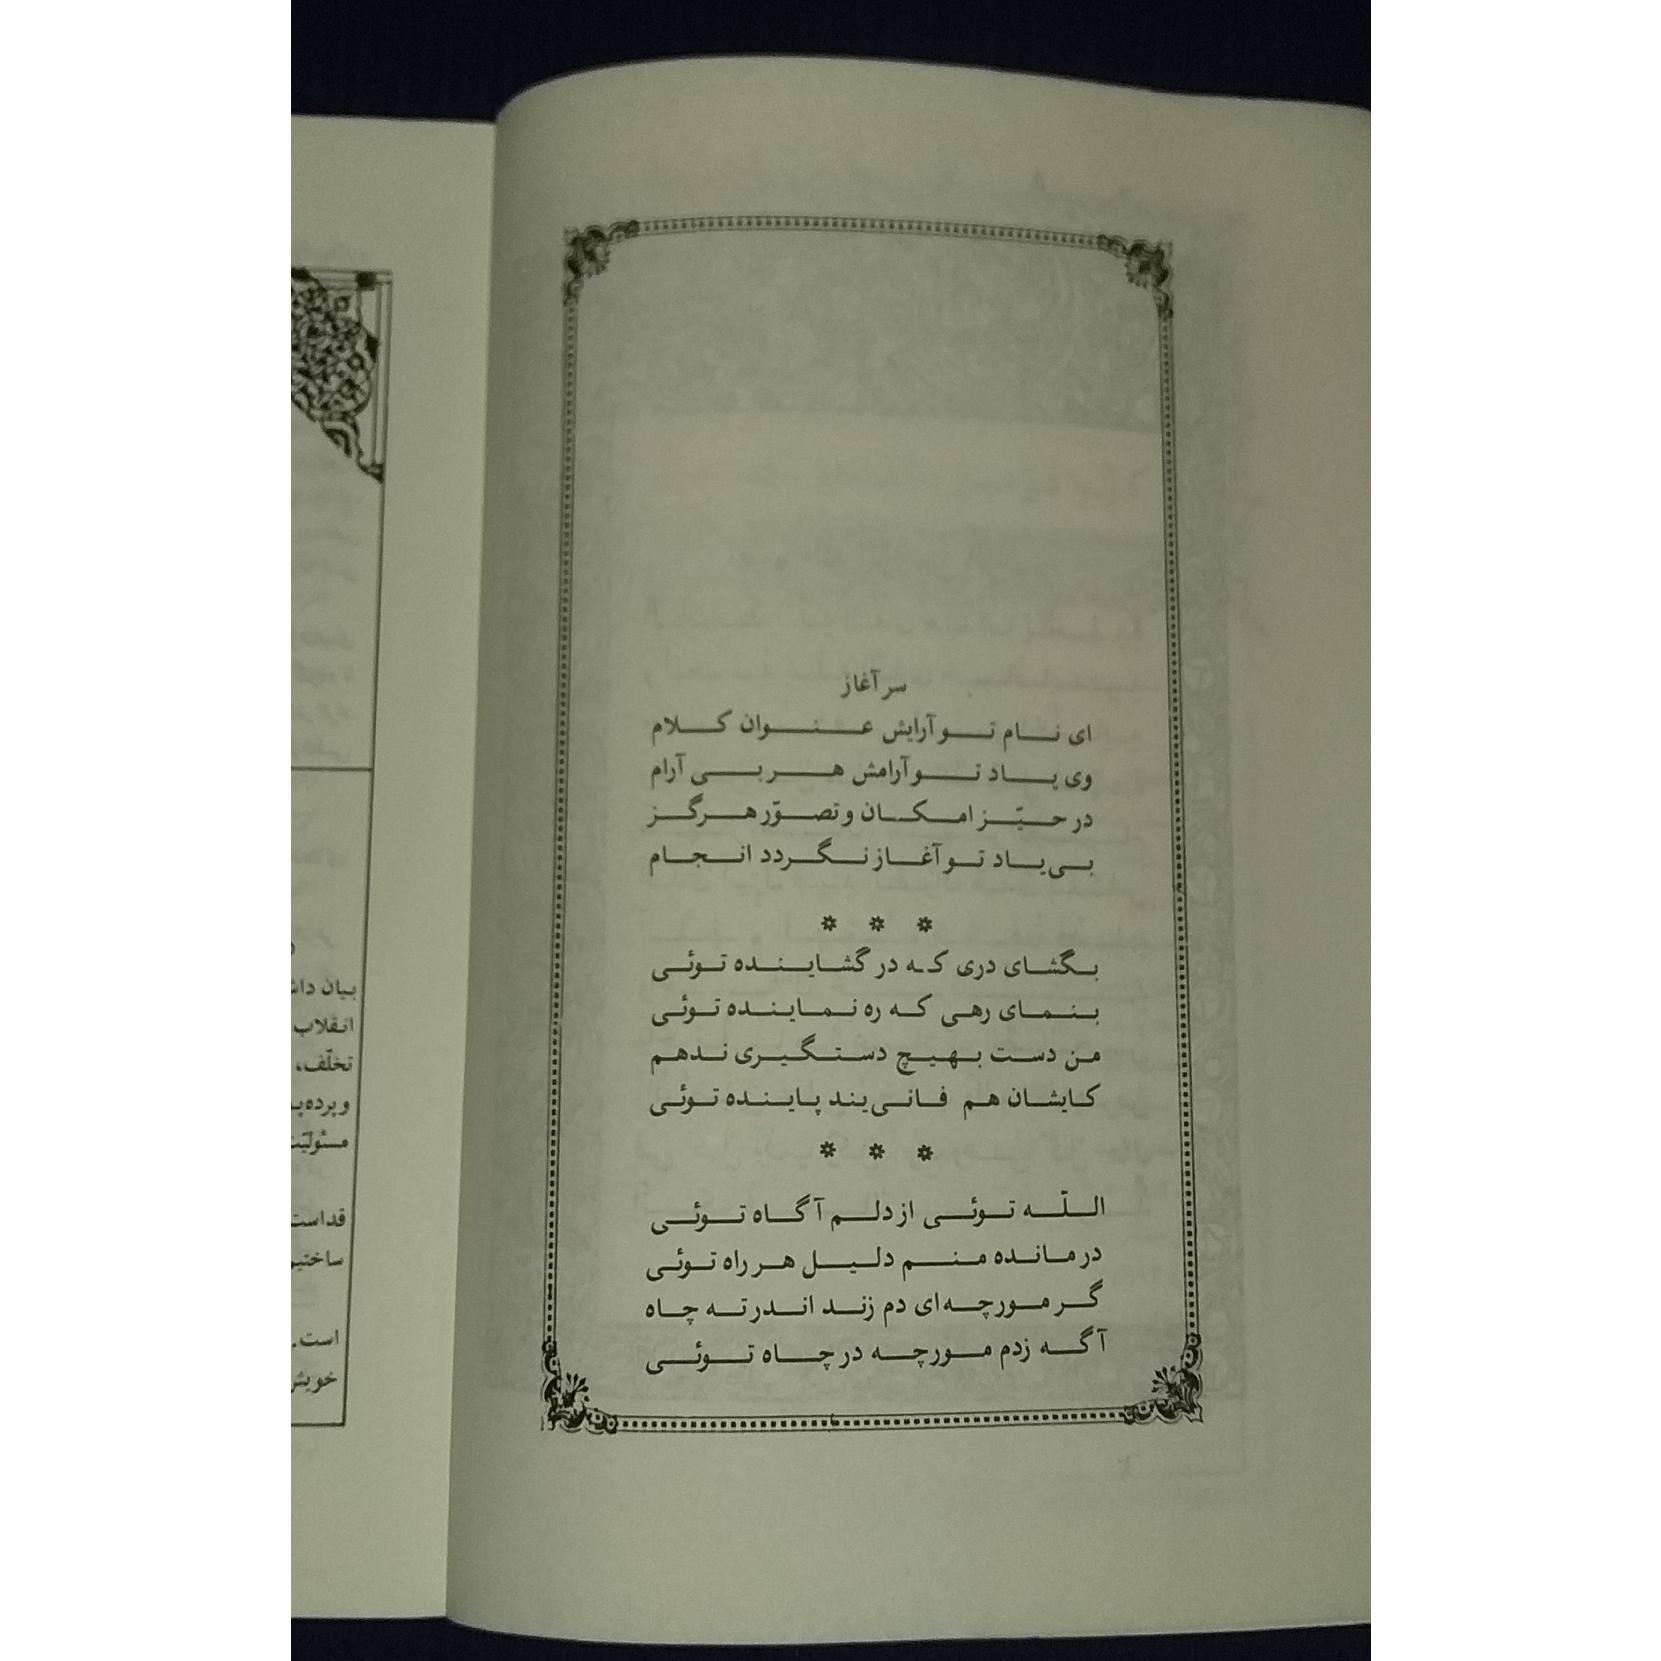 سر آغاز
ای نام تو آرایش عنوان کلام
وی یاد تو آرامش هر بی آرام
در حیّز امکان و تصوّر هرگز
بی یاد تو آغاز نگردد انجام
* * *
بگشای دری که در گشاینده توئی
بنمای رهی که ره نماینده توئی
من دست بهیچ دستگیری ندهم
کایشان هم فانی‌یند پاینده توئی
* * *
اللّه توئی از دلم آگاه توئی
درمانده منم دلیل هر راه توئی
گر مورچه‌ای دم زند اندر ته چاه
آگه زدم مورچه در چاه توئی
بیان
انقلاب
تخلّف،
و پرده
قداست
است.